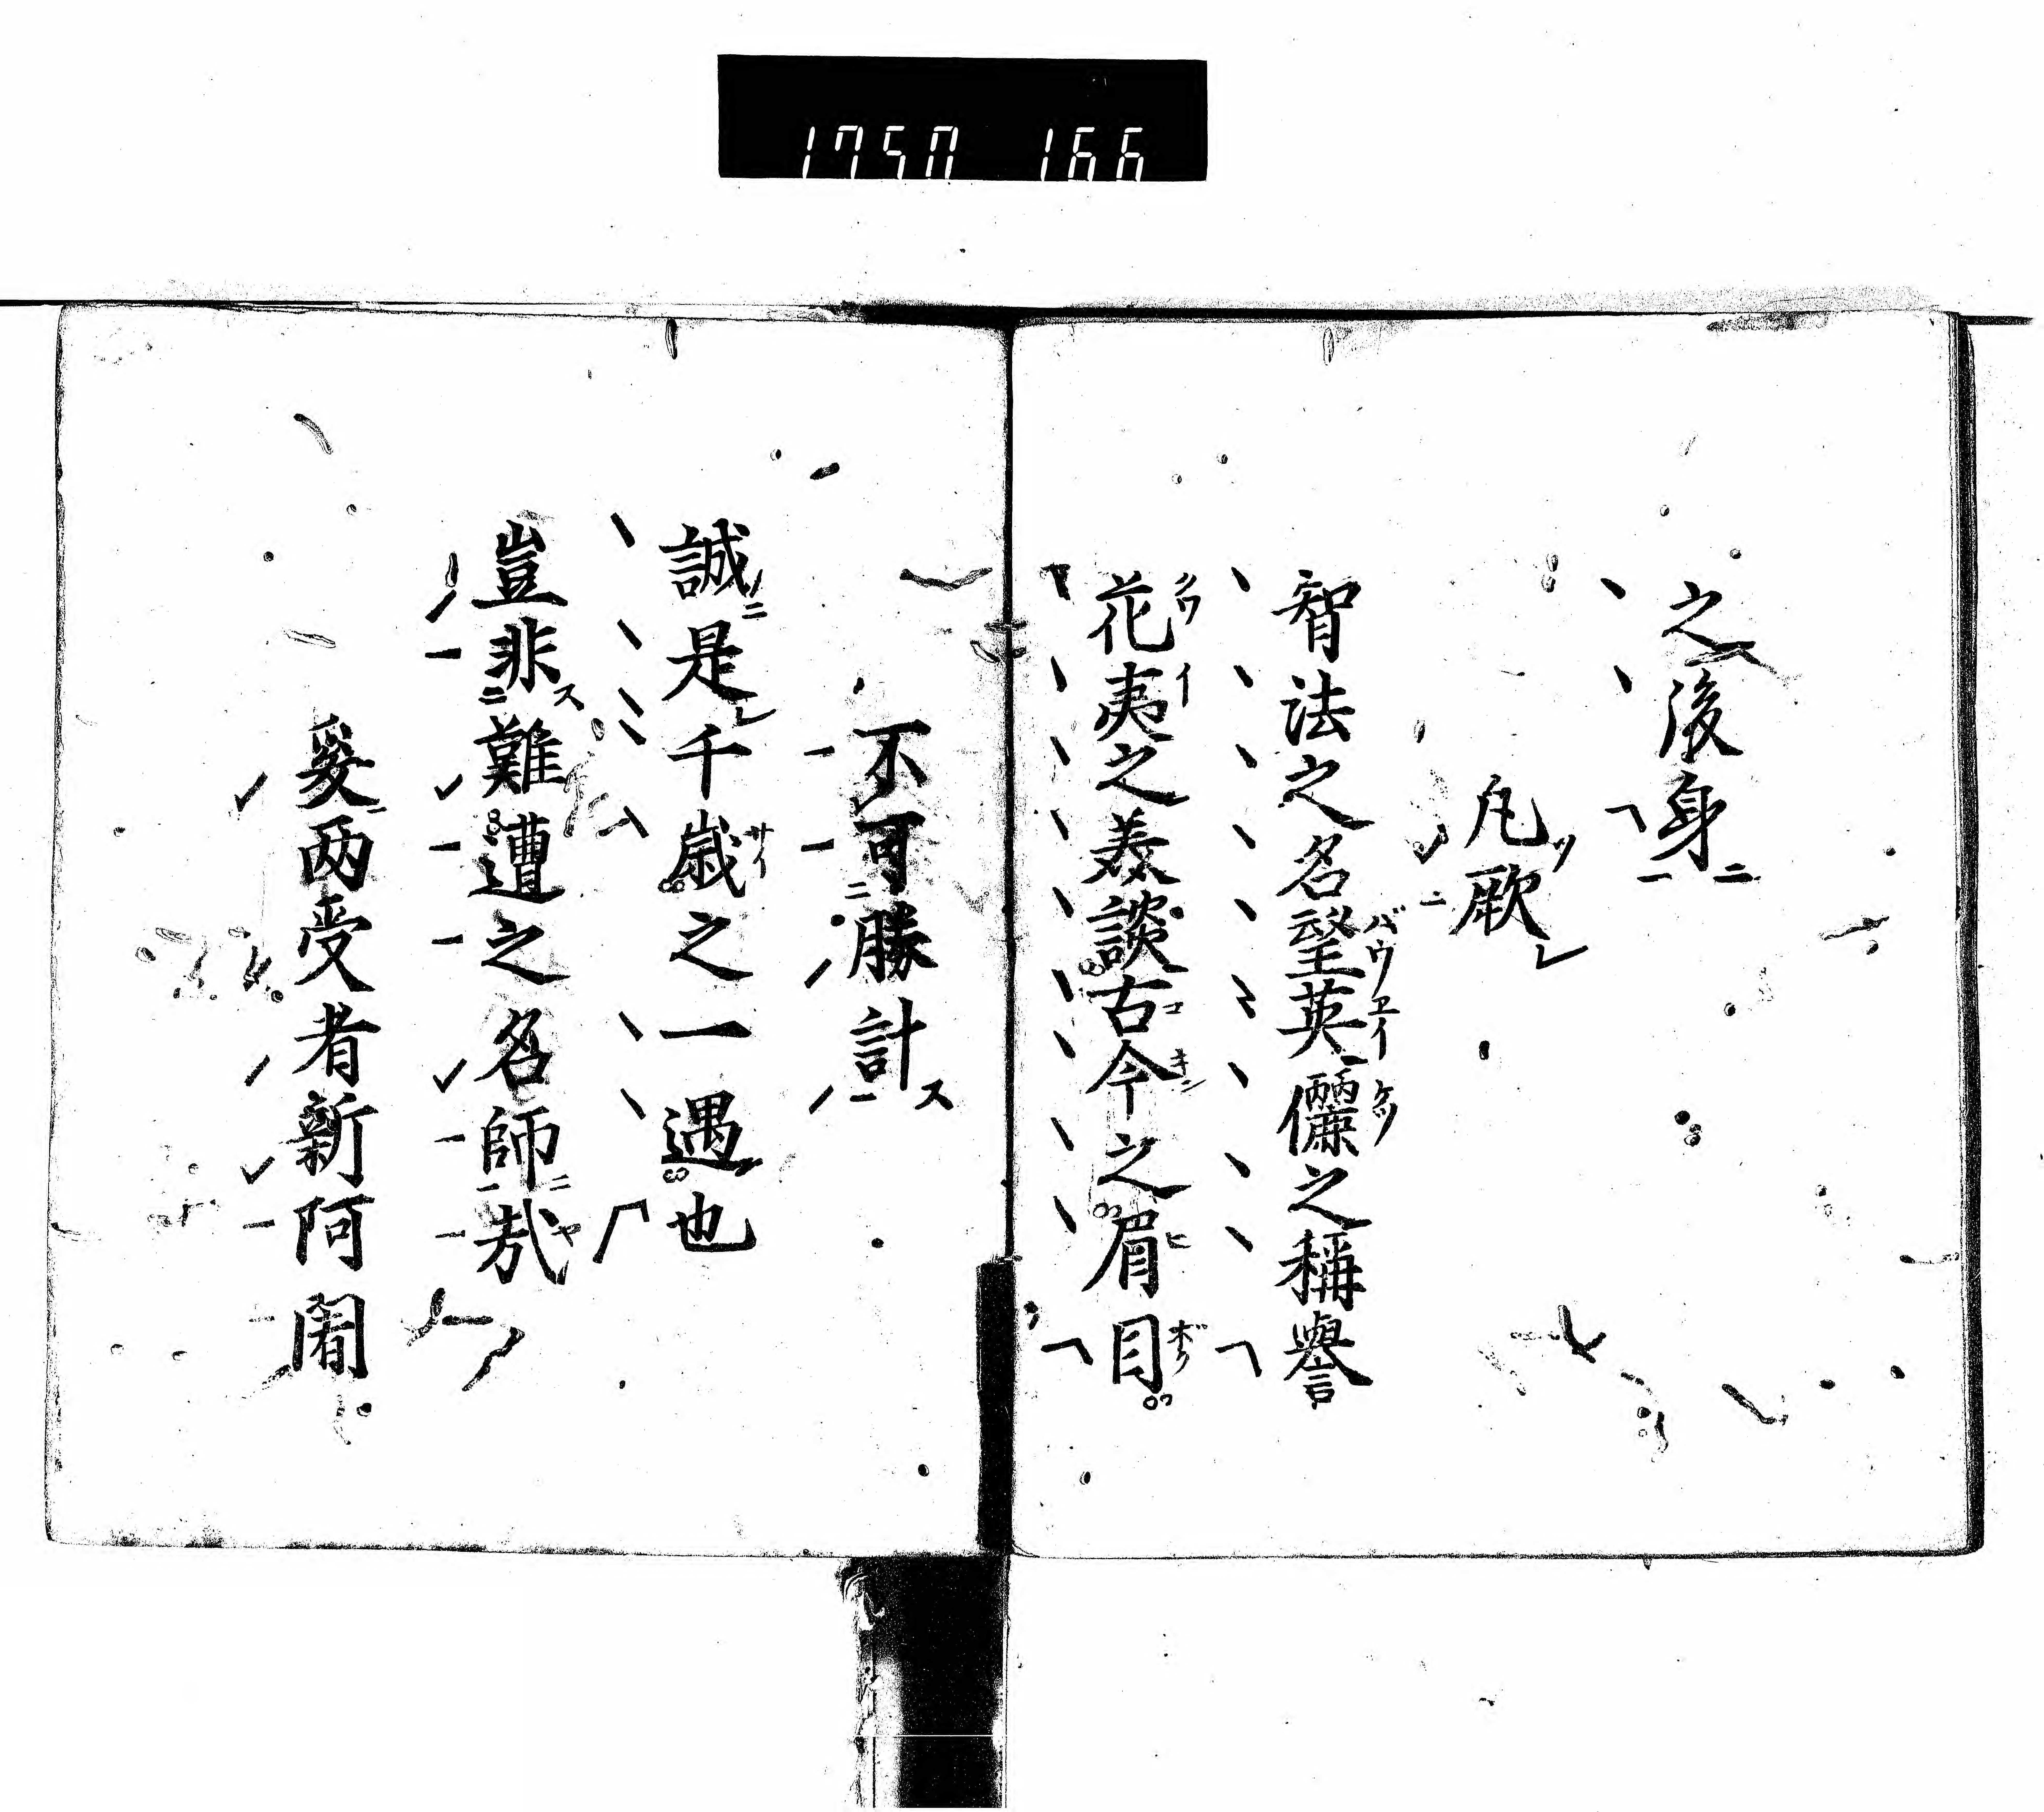 1750 166
之後身
凡厥
智法之名望英儷之稱譽
花夷之美談古今之眉目
不可勝計
誠是千歳之一遇也
豈非難遭之名師哉
爰両受者新阿闍